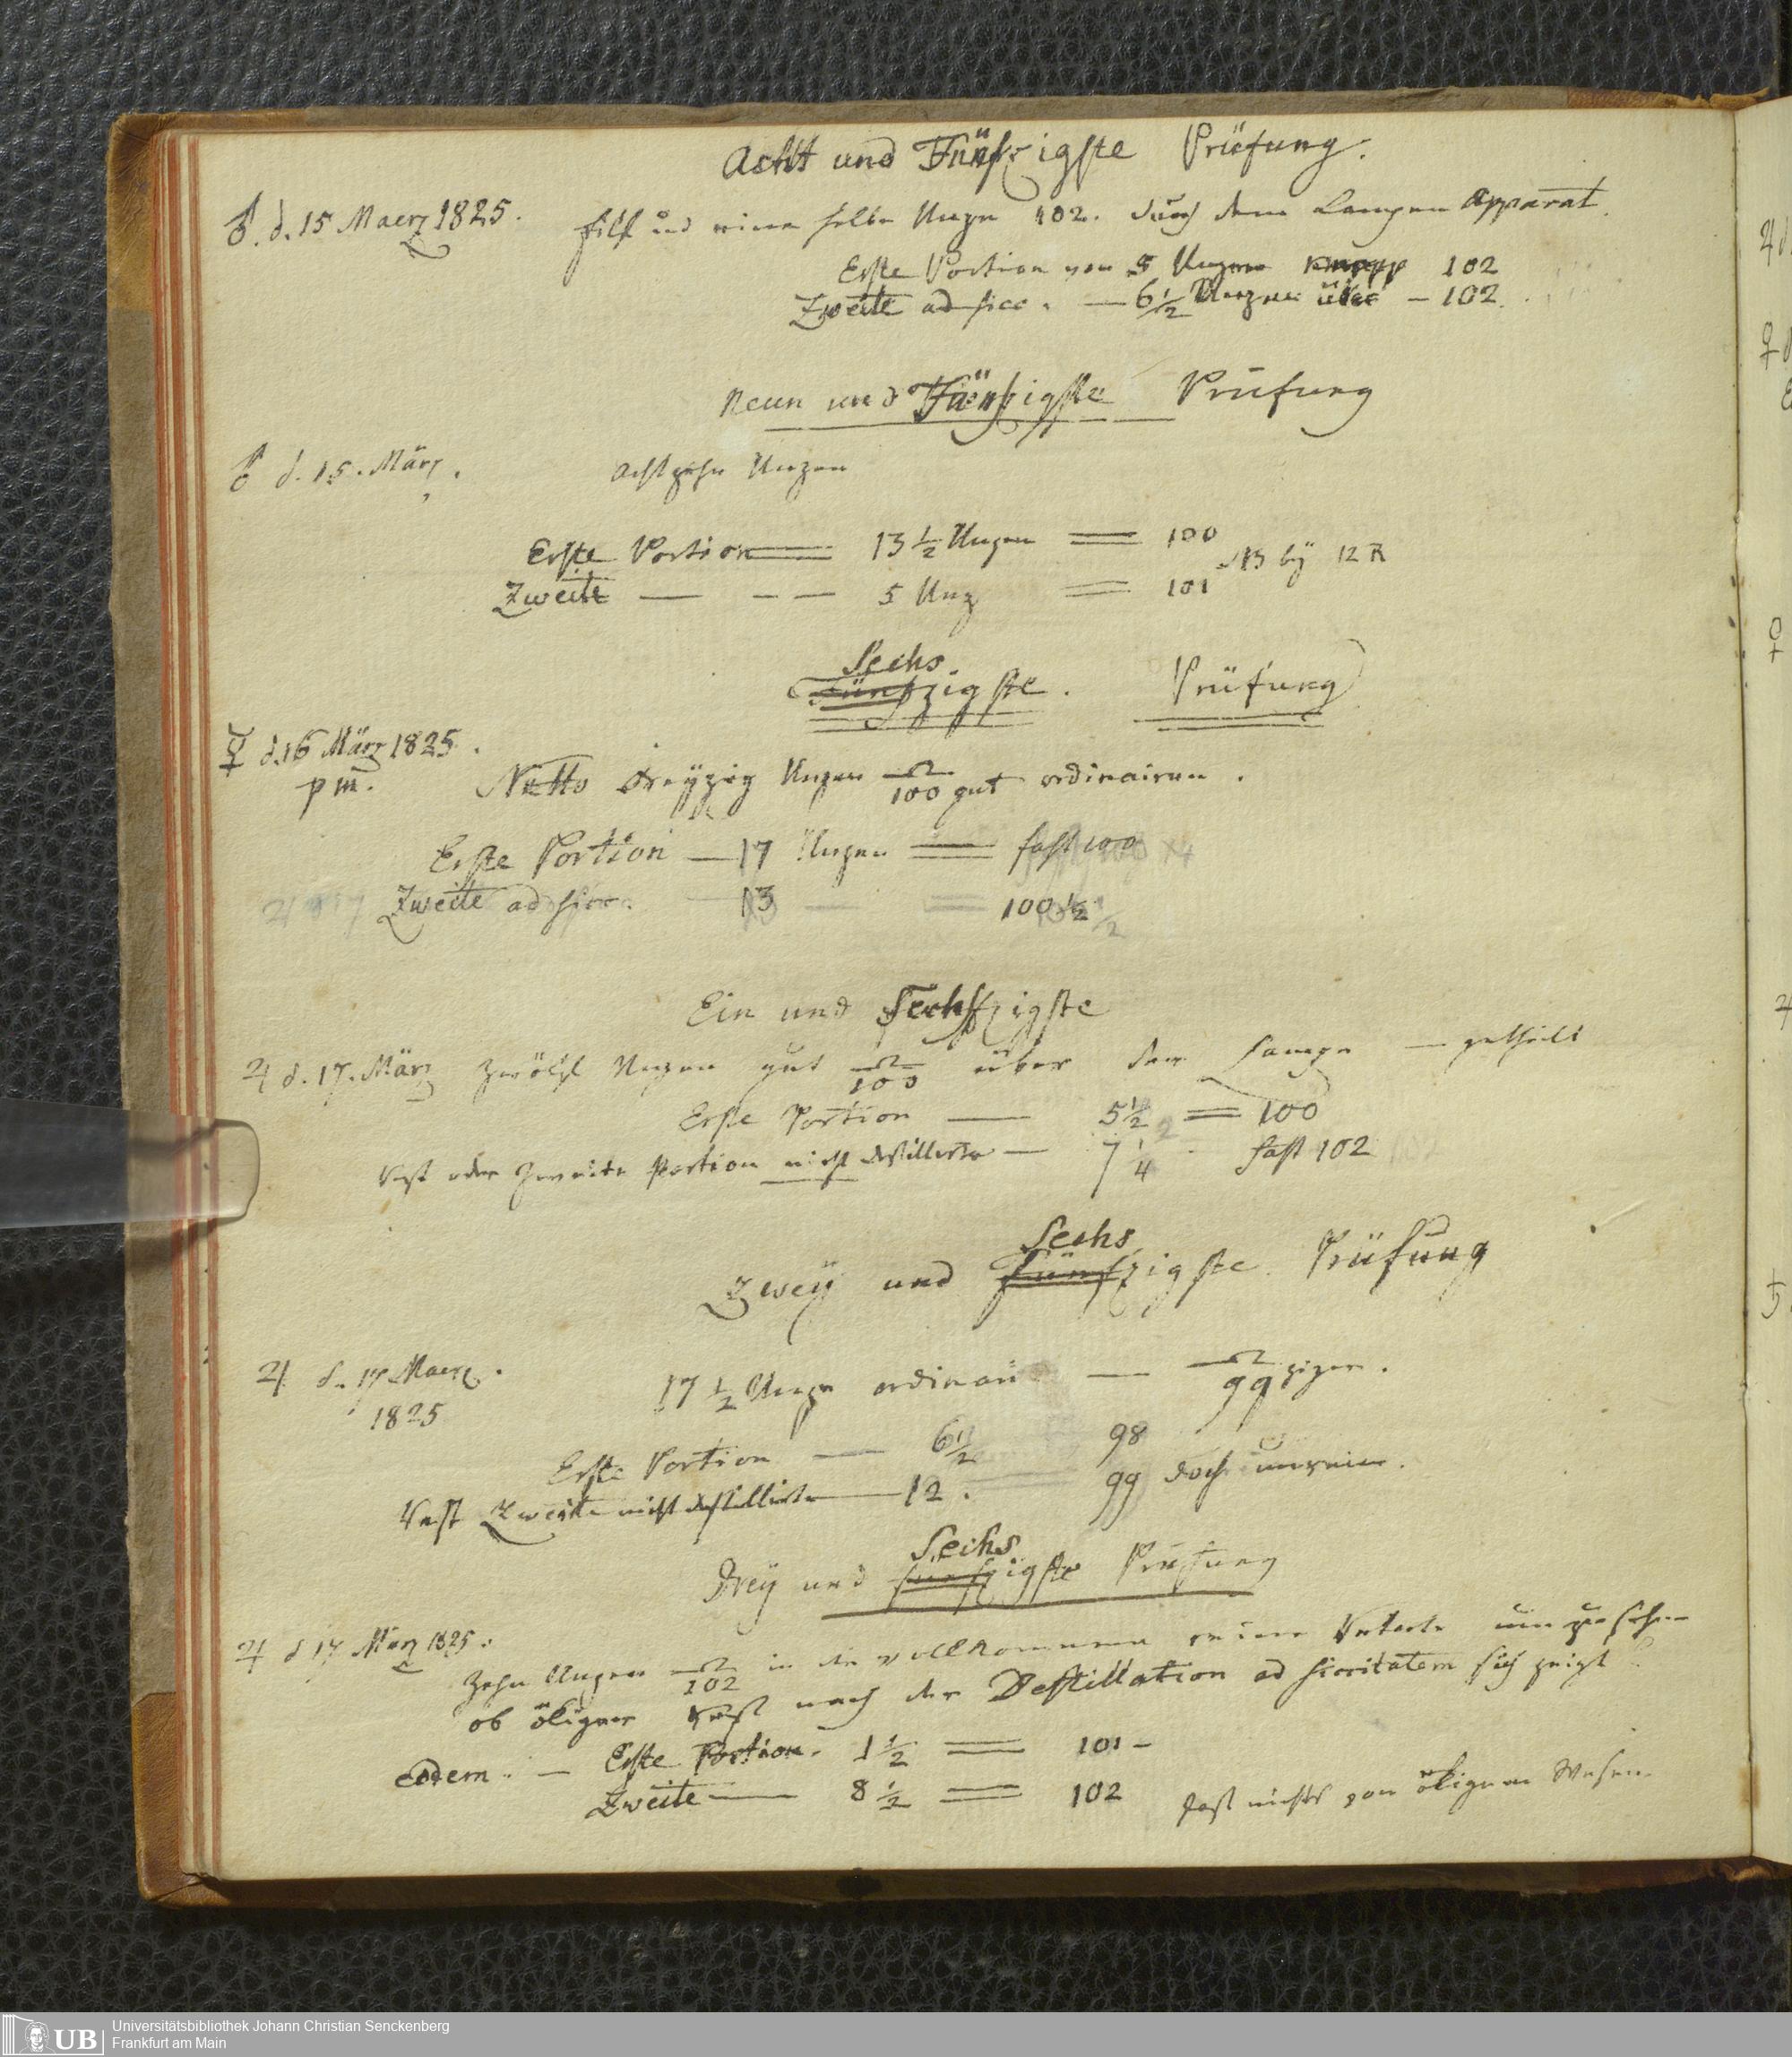 Acht und Fünfzigste Prüfung.
♂. d. 15 Maerz 1825. Eilf und eine halbe Unze 102. durch dem Lampen Apparat.
Erste Portion von 5 Unzen knapp 102
Zweite ad sicc. — 6 1/2 Unzen über — 102.
Neun und Fünfzigste Prüfung
♂ d. 15. März. Achtzehn Unzen
Erste Portion == 13 1/2 Unzen == 100
13 bÿ 12 R
Zweite — — — 5 Unz == 101
Sechs
Fünfzigste. Prüfung
☿ d. 16 März 1825.
p m. Netto dreyzig Unzen 100 gut ordinairen.
Erste Portion — 17 Unzen == fast 100
Zweite ad sicc. — 13 — == 100 1/2
Ein und Sechszigste
♃ d. 17. März Zwölf Unzen gut 100 über der Lampe — getheilt
Erste Portion — 5 1/2 == 100
Rest oder Zweite Portion nicht destillirte — 7 1/4 - fast 102
Sechs
Zweÿ und fünfzigste Prüfung
♃ d. 17 Maerz.
1825
17 1/2 Unze ordinair — 99 ziger.
Erste Portion — 6 1/2 98
Rest Zweite nicht destillirte — 12. 99 doch unrein.
Sechs
Dreÿ und funfzigste Prüfung
♃ d 17 März 1825.
Zehn Unzen 102 in die vollkommen reine Retorte um zu sehen
ob öligner Rest nach der Destillation ad siccitatem sich zeigt
eodem. — Erste Portion. 1 1/2 == 101 -
Zweite — 8 1/2 == 102 fast nichts von öligem Wesen
Universitätsbibliothek Johann Christian Senckenberg
Frankfurt am Main
UB